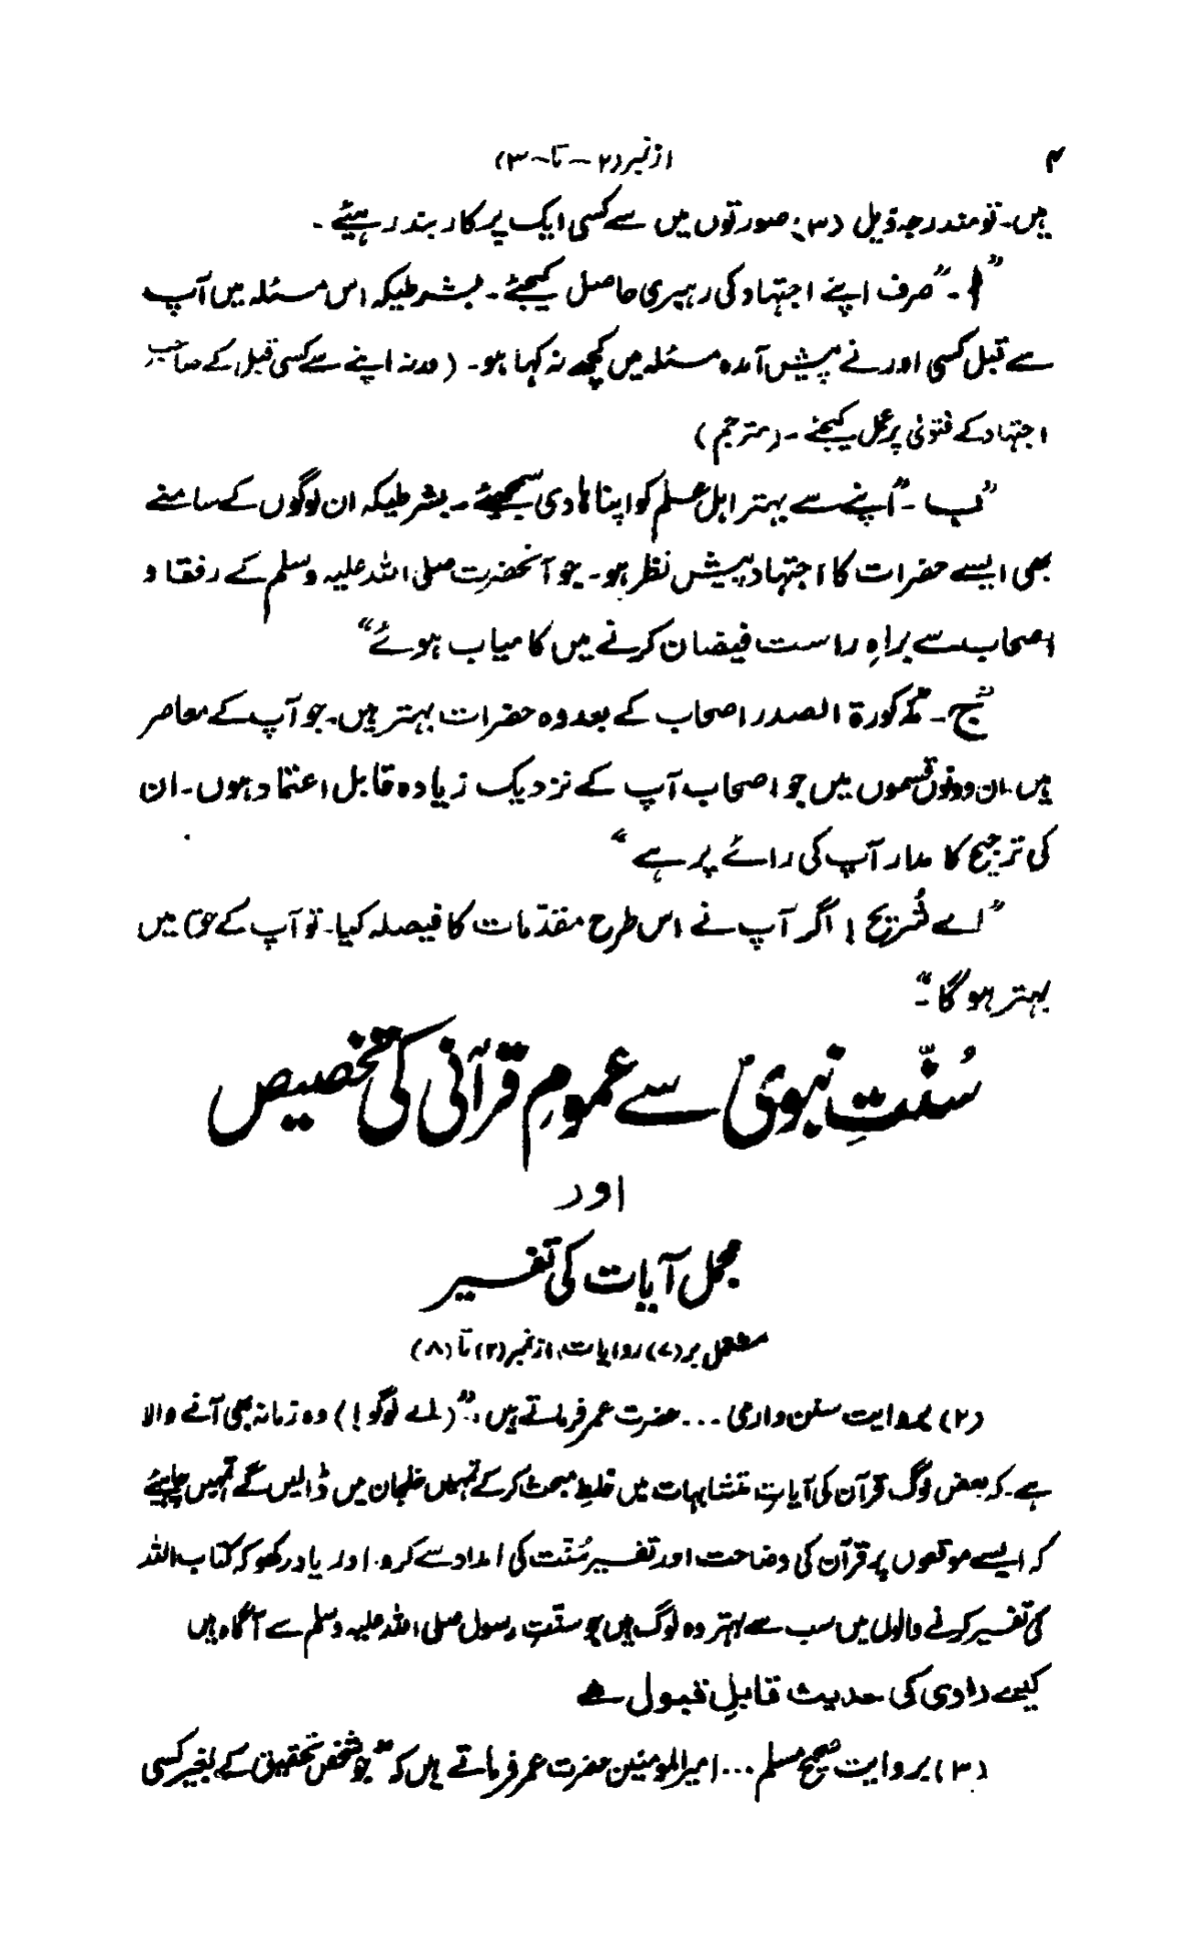 ۴ از نمبر (۲ – تا – ۳)
ہیں۔ تو مندرجہ ذیل (۳) صورتوں میں سے کسی ایک پر کاربند رہیئے۔
"ا۔" صرف اپنے اجتہاد کی رہبری حاصل کیجئے۔ بشرطیکہ اس مسئلہ میں آپ
سے قبل کسی اور نے پیش آمدہ مسئلہ میں کچھ نہ کہا ہو۔ (ورنہ اپنے سے کسی قبل کے صاحب
اجتہاد کے فتویٰ پر عمل کیجئے۔ (مترجم)
"ب۔" اپنے سے بہتر اہل علم کو اپنا ہادی سمجھئے۔ بشرطیکہ ان لوگوں کے سامنے
بھی ایسے حضرات کا اجتہاد پیش نظر ہو۔ جو آنحضرت صلی اللہ علیہ وسلم کے رفقا و
اصحاب سے براہِ راست فیضان کرنے میں کامیاب ہوئے"
"ج۔ مذکورۃ الصدر اصحاب کے بعد وہ حضرات بہتر ہیں۔ جو آپ کے معاصر
ہیں۔ ان دونوں قسموں میں جو اصحاب آپ کے نزدیک زیادہ قابل اعتماد ہوں۔ ان
کی ترجیح کا مدار آپ کی رائے پر ہے"
"اے شُریح! اگر آپ نے اس طرح مقدّمات کا فیصلہ کیا۔ تو آپ کے حق میں
بہتر ہوگا۔"
سُنّتِ نبویؐ سے عمومِ قرآنی کی تخصیص
اور
مجمل آیات کی تفسیر
مشتمل بر (۷) روایات، از نمبر (۲) تا (۸)
(۲) بروایت سنن دارمی ... حضرت عمر فرماتے ہیں: "(اے لوگو!) وہ زمانہ بھی آنے والا
ہے۔ کہ بعض لوگ قرآن کی آیاتِ متشابہات میں خلطِ مبحث کر کے تمہیں خلجان میں ڈالیں گے تمہیں چاہیئے
کہ ایسے موقعوں پر قرآن کی وضاحت اور تفسیر سُنّت کی امداد سے کرو۔ اور یاد رکھو کہ کتاب اللہ
کی تفسیر کرنے والوں میں سب سے بہتر وہ لوگ ہیں جو سنّتِ رسول صلی اللہ علیہ وسلم سے آگاہ ہیں
کیسے راوی کی حدیث قابلِ قبول ہے
(۳) بروایت صحیح مسلم ... امیرالمومنین حضرت عمر فرماتے ہیں کہ "جو شخص تحقیق کے بغیر کسی